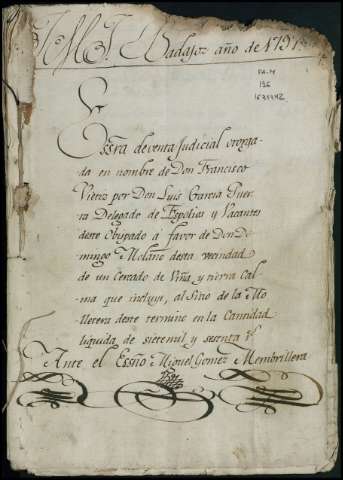 J. M. J. Badajoz año de 1791
FA.M
136
Essra de venta Judicial otorga-
da en nombre de Don Francisco
Vierez por Don Luis Garcia Guer-
ra Delegado de Espolios y Vacantes
deste Obispado á favor de Don Do-
mingo Molano desta vecindad
de un Cercado de Viña, y tierra Cal-
ma que incluye, al Sitio de la Mo-
lletera deste termino en la Cantidad
liquida de sietemil y setenta rs
Ante el Essno Miguel Gomez Membrillera